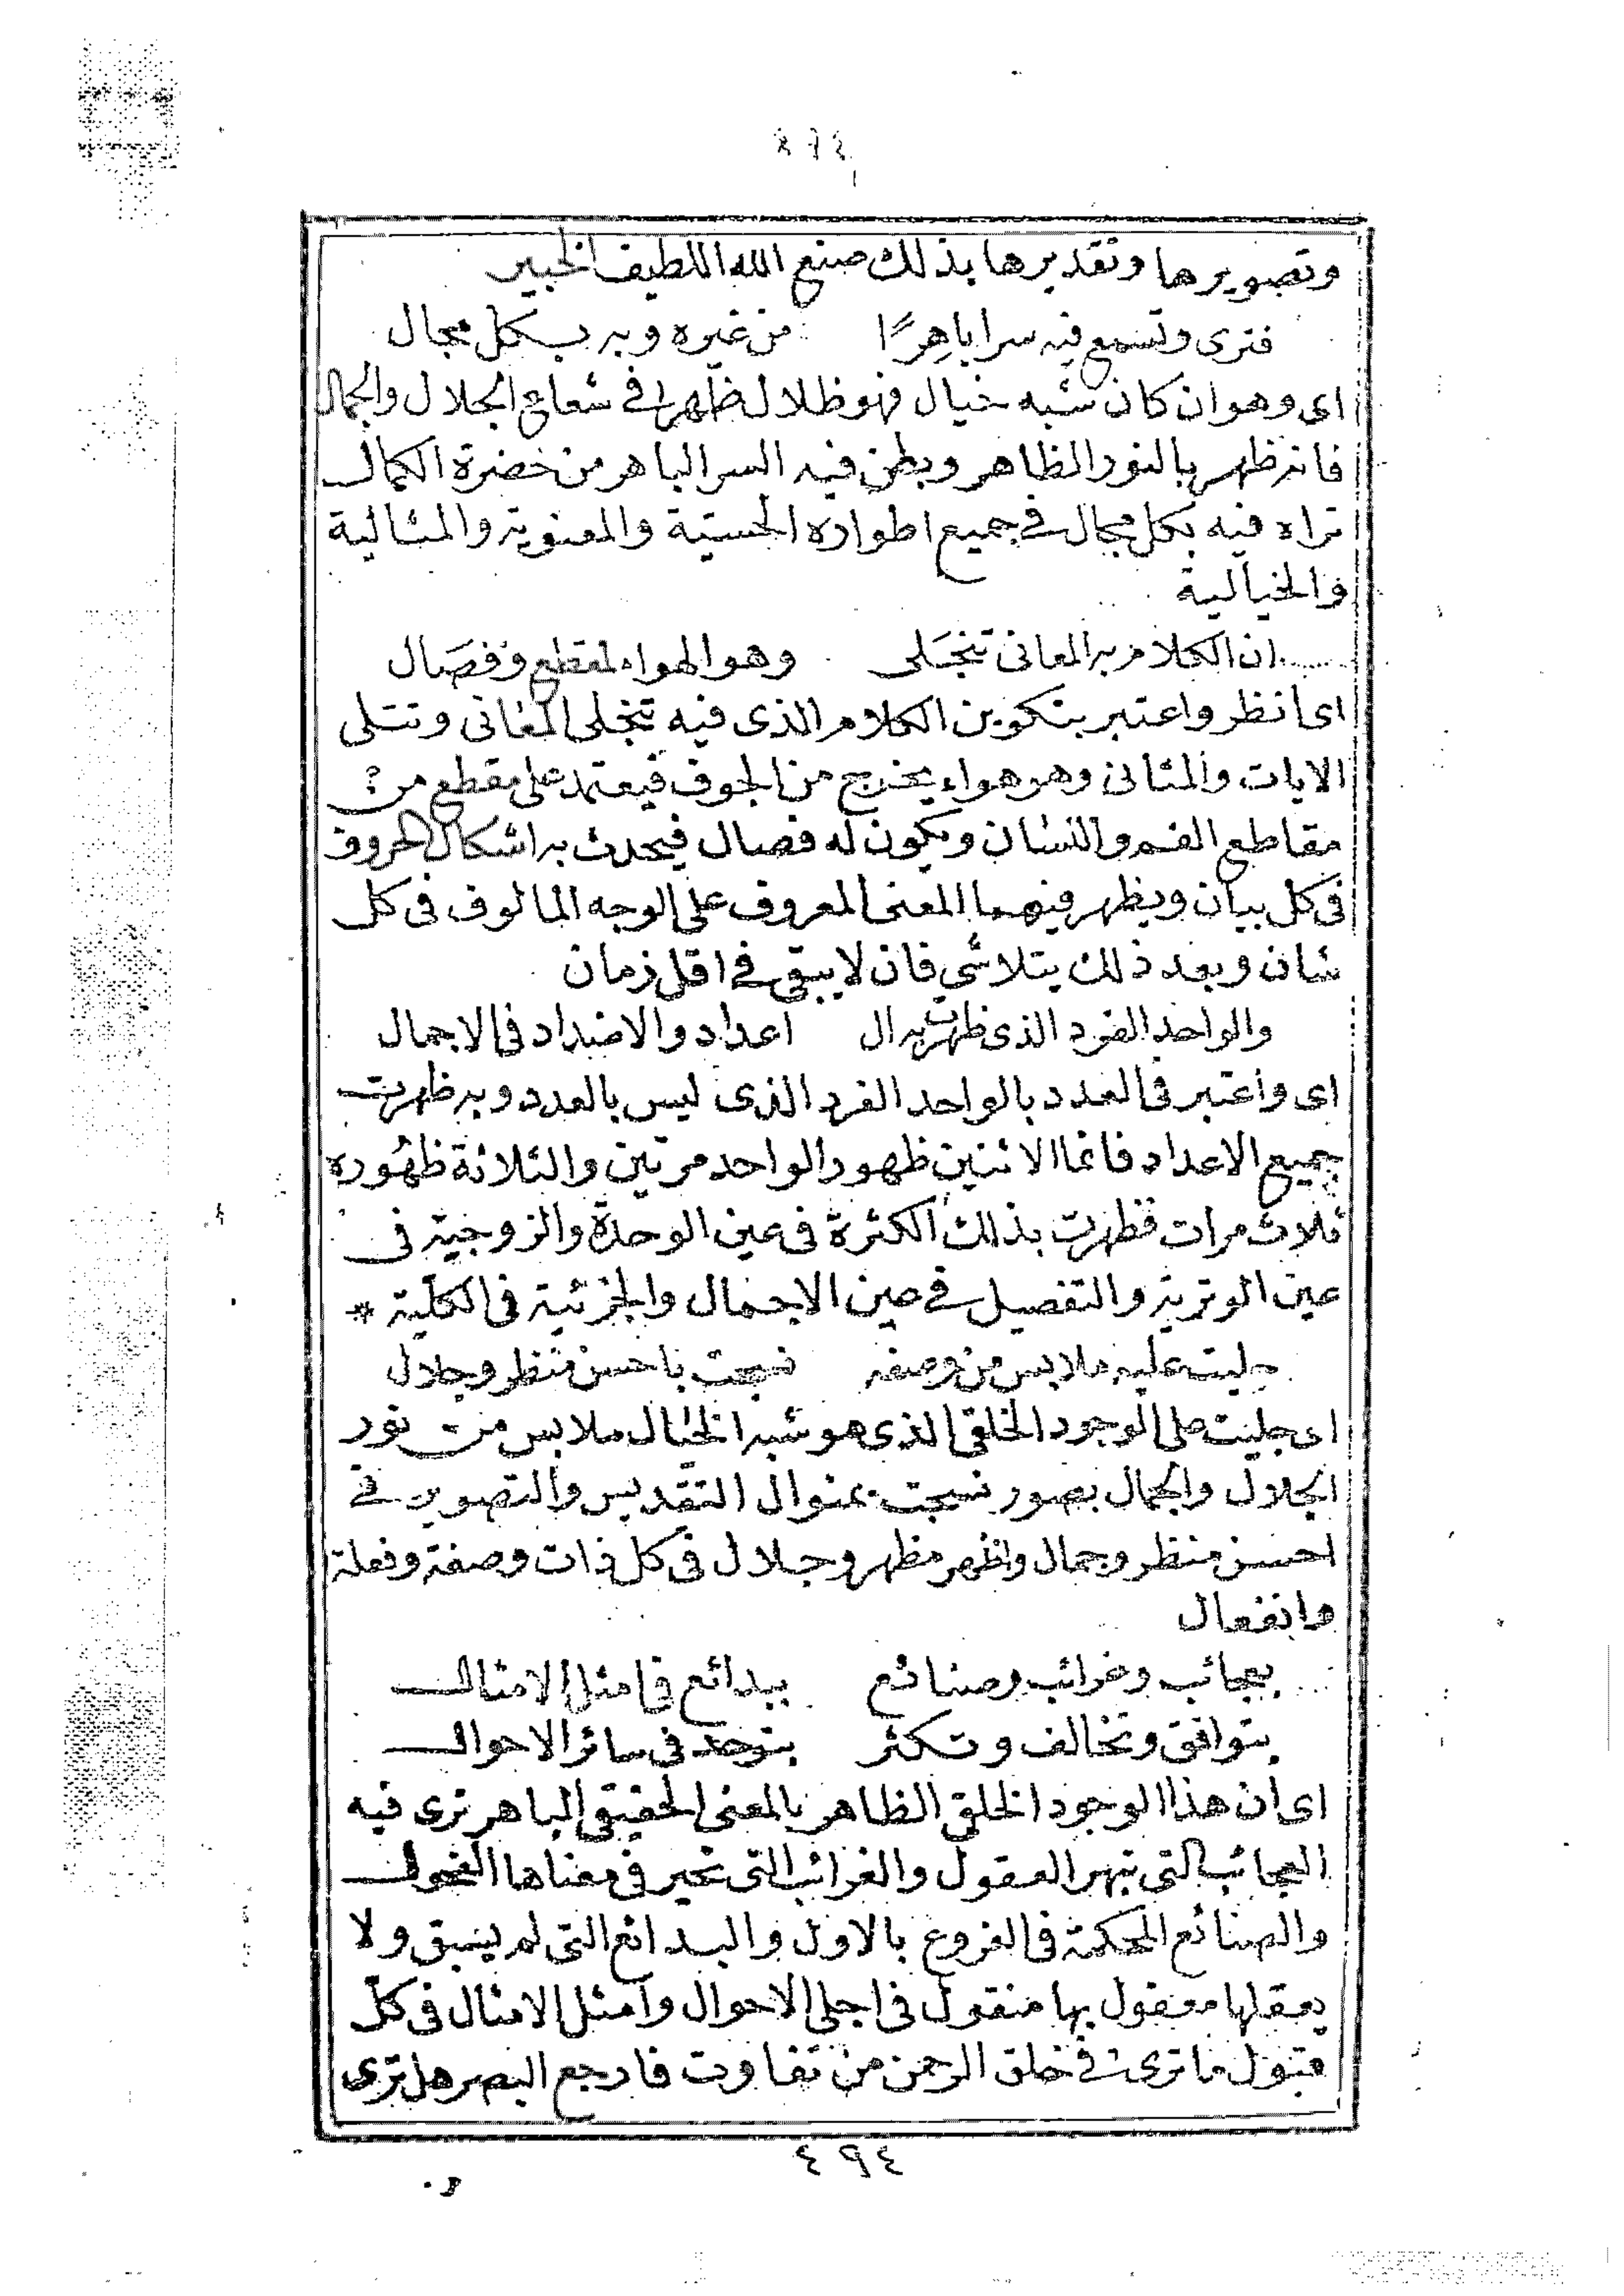 وتصويرها وتقديرها بذلك صنع الله اللطيف الخبير
فترى وتسمع فيه سرا باهرًا من غيره وبه بكل مجال
اى وهو ان كان شبه خيال فهو ظلال ظهرا فى شعاع الجلال والجمال
فانه ظهر بالنور الظاهر وبطن فيه السر الباهر من حضرة الكمال
تراه فيه بكل مجال فى جميع اطواره الحسيّة والمعنوية والمثالية
والخيالية
ان الكلام به المعانى تنجَلى وهو الهواء لمقطع وفصَال
اى انظر واعتبر بتكوين الكلام الذى فيه تنجلى المعانى وتتلى
الايات والمثانى وهو هواء يخرج من الجوف فيعتمد على مقطع من
مقاطع الفم واللسان ويكون له فصال فيحدث به اشكال الحروف
فى كل بيان ويظهر فيهما المعنى المعروف على الوجه المالوف فى كل
شان وبعد ذلك يتلاشى فان لا يبقى فى اقل زمان
والواحد الفرد الذى ظهرت به ال اعداد والاضداد فى الاجمال
اى واعتبر فى العدد بالواحد الفرد الذى ليس بالعدد وبه ظهرت
جميع الاعداد فانما الاثنين ظهور الواحد مرتين والثلاثة ظهُوره
ثلاث مرات فظهرت بذلك الكثرة فى عين الوحدة والزوجية فى
عين الوترية والتفصيل فى عين الاجمال والجزئية فى الكليّة *
جليت عليه ملابس من وصفه نسجت باحسن منظر وجلال
اى جليت على الوجود الخلقى الذى هو شبه الخيال ملابس من نور
الجلال والجمال بصور نسجت بمنوال التقديس والتصوير فى
احسن منظر وجمال واظهر مظهر وجلال فى كل ذات وصفة وفعلة
وانفعال
بعجائب وغرائب وصنائع ببدائع فى امثل الامثال
بتوافق وتخالف وتكثر بتوحد فى سائر الاحوال
اى ان هذا الوجود الخلقى الظاهر بالمعنى الحقيقى الباهر ترى فيه
العجائب التى تبهر العقول والغرائب التى تحير فى معناها الفحول
والصنائع المحكمة فى الفروع بالاول والبدائع التى لم يسبق ولا
يعقلها معقول بها منقول فى اجلى الاحوال وامثل الامثال فى كلّ
قبول ما ترى فى خلق الرحمن من تفاوت فارجع البصر هل ترى
٤٩٤